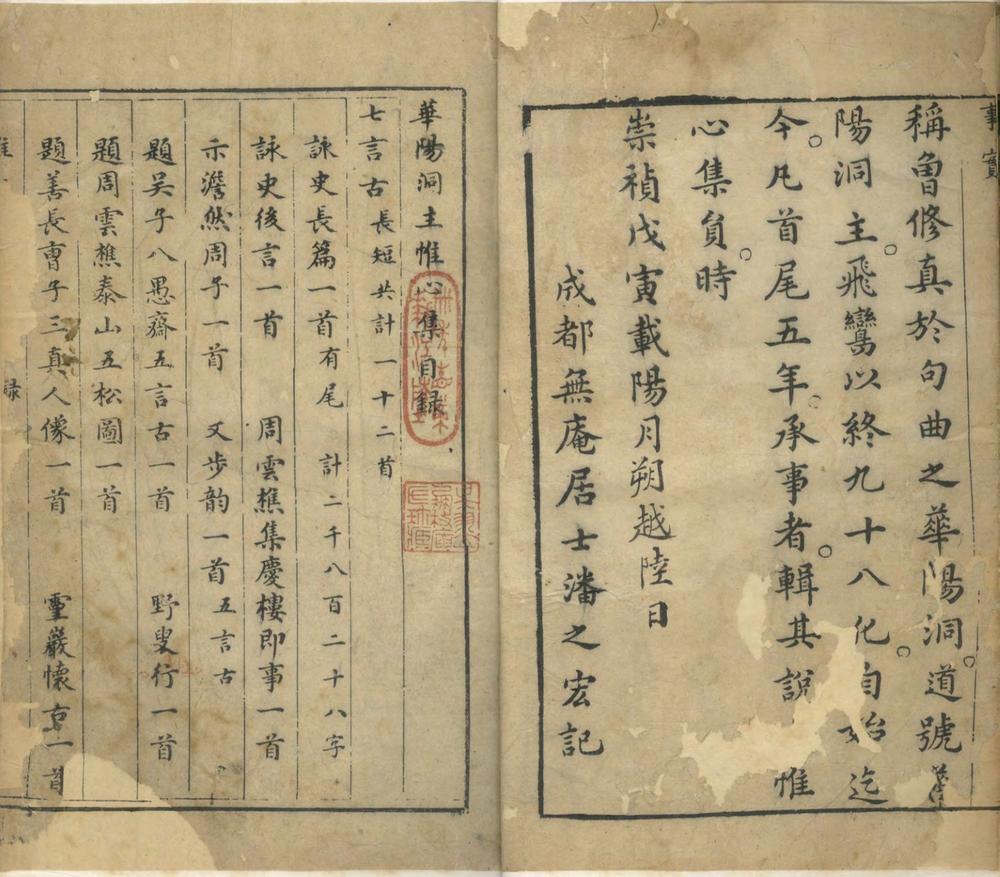 事實
稱曾修真於句曲之華陽洞。道號華
陽洞主。飛鸞以終九十八化。自始迄
今。凡首尾五年。承事者。輯其說惟
心集負。時
崇禎戊寅載陽月朔越陸日
成都無庵居士潘之宏記
華陽洞主惟心集目錄
七言古長短共計一十二首
詠史長篇一首有尾 計二千八百二十八字
詠史後言一首 周雲樵集慶樓即事一首
示澹然周子一首 又步韵一首五言古
題吴子八愚齋五言古一首 野叟行一首
題周雲樵泰山五松圖一首
題善長曹子三真人像一首 靈巖懷古一首
錄